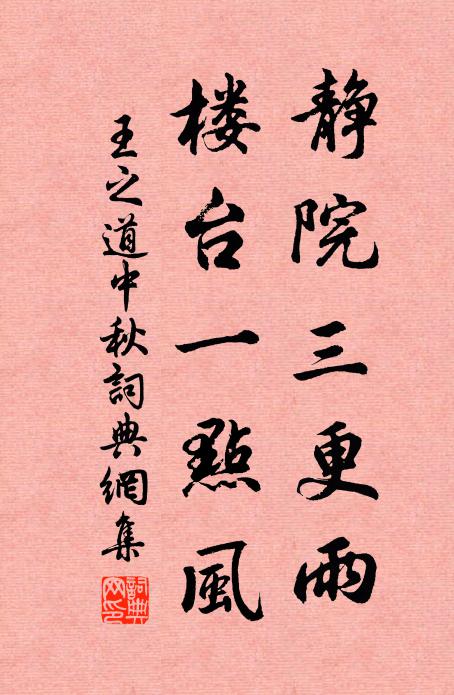 静院三更雨
楼台一點風
王之道中秋詞典網集
詞典网印